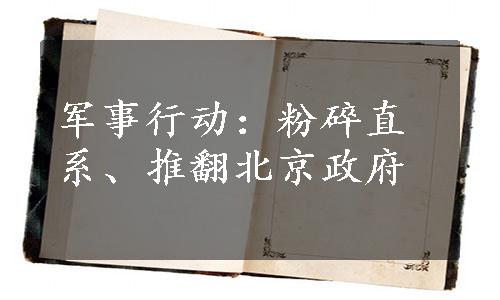 军事行动：粉碎直
系、推翻北京政府